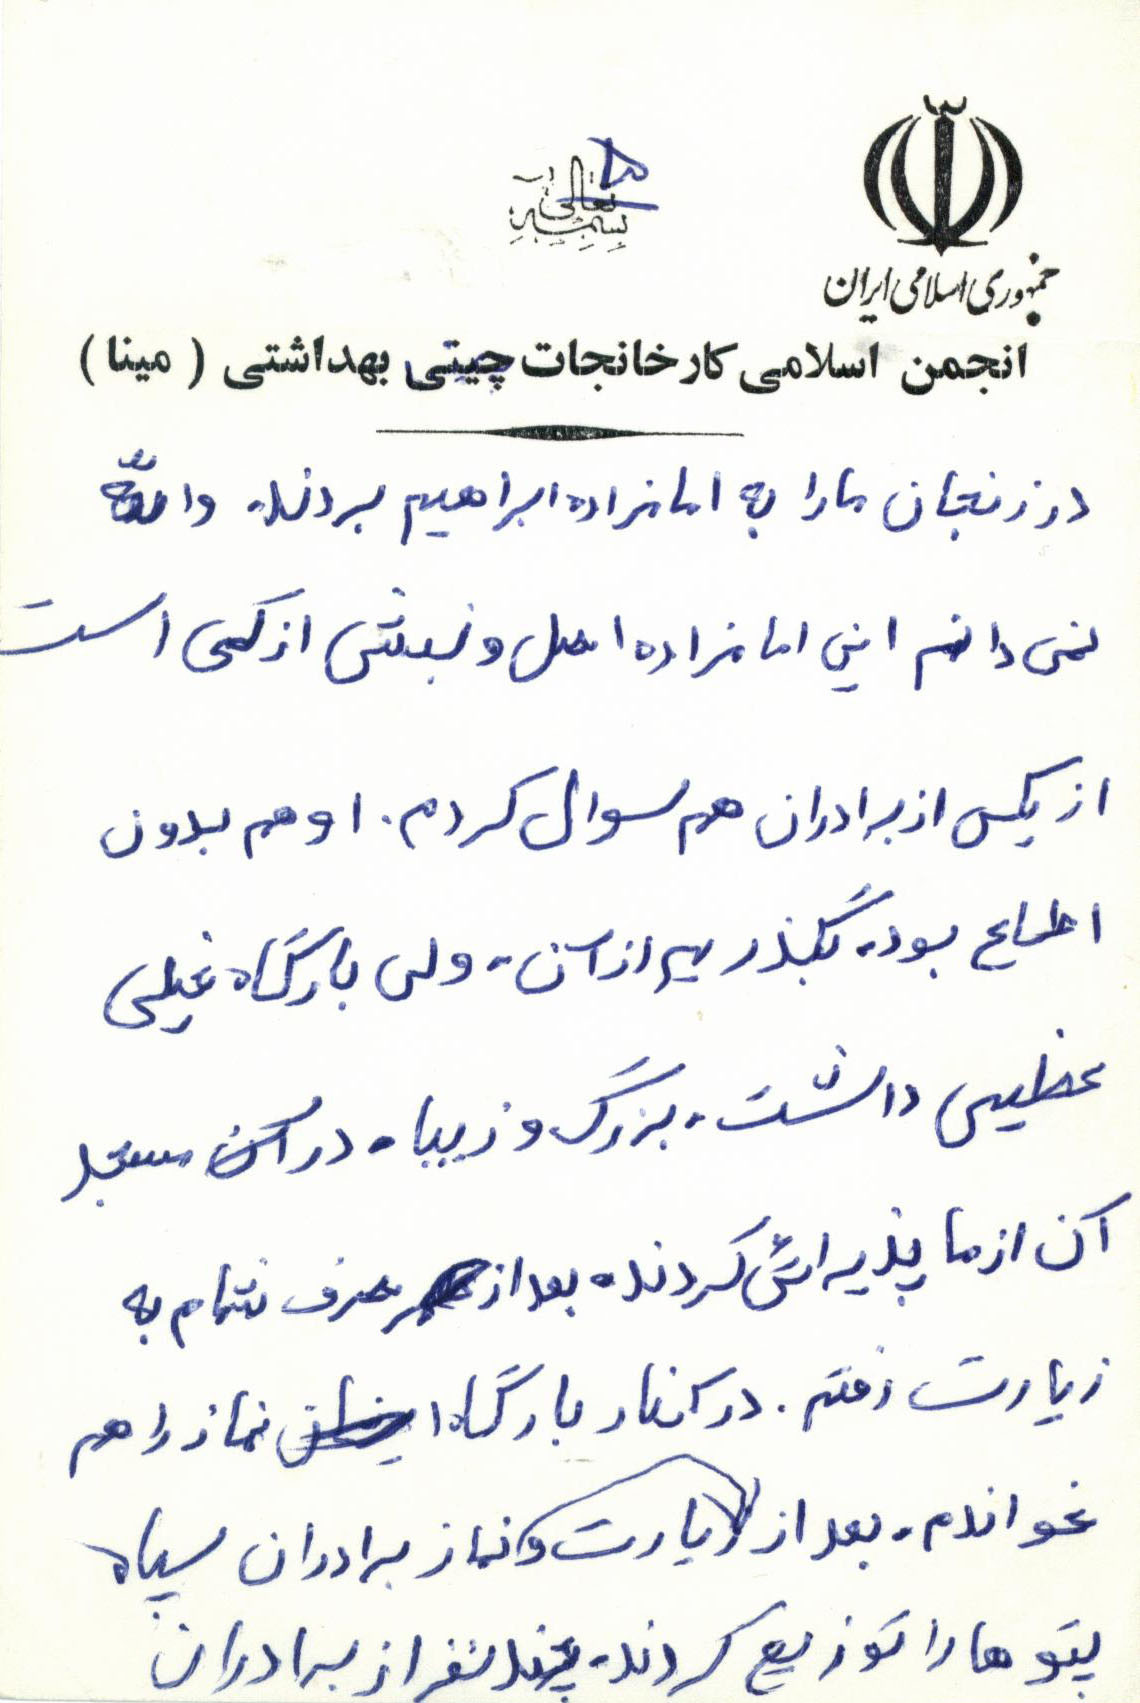 ۵
بسمه تعالی
جمهوری اسلامی ایران
انجمن اسلامی کارخانجات چیتی بهداشتی ( مینا )
در زنجان ما را به امامزاده ابراهیم بردند. والله
نمی دانم این امامزاده اصل و نسبش از کی است
از یکی از برادران هم سوال کردم. او هم بدون
اطلاع بود. بگذریم از آن. ولی بارگاه خیلی
عظیمی داشت. بزرگ و زیبا. در مسجد
آن از ما پذیرائی کردند. بعد از صرف شام به
زیارت رفتم. در کنار بارگاه نماز را هم
خواندم. بعد از زیارت و نماز برادران سپاه
پتو ها را توزیع کردند. چند نفر از برادران